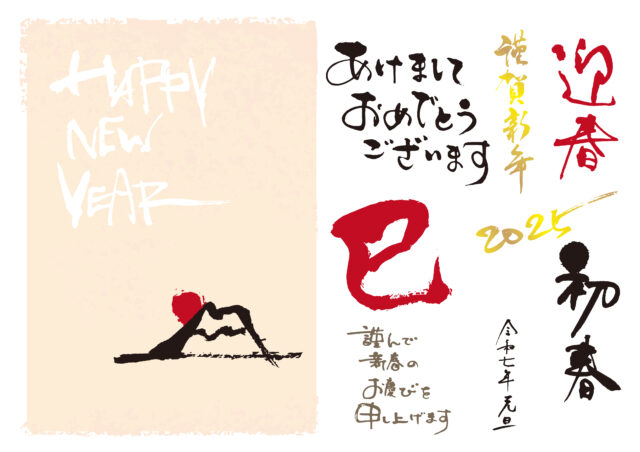 HAPPY
NEW
YEAR
あけまして
おめでとう
ございます
謹賀新年
迎春
巳
2025
初春
謹んで
新春の
お慶びを
申し上げます
令和七年元旦